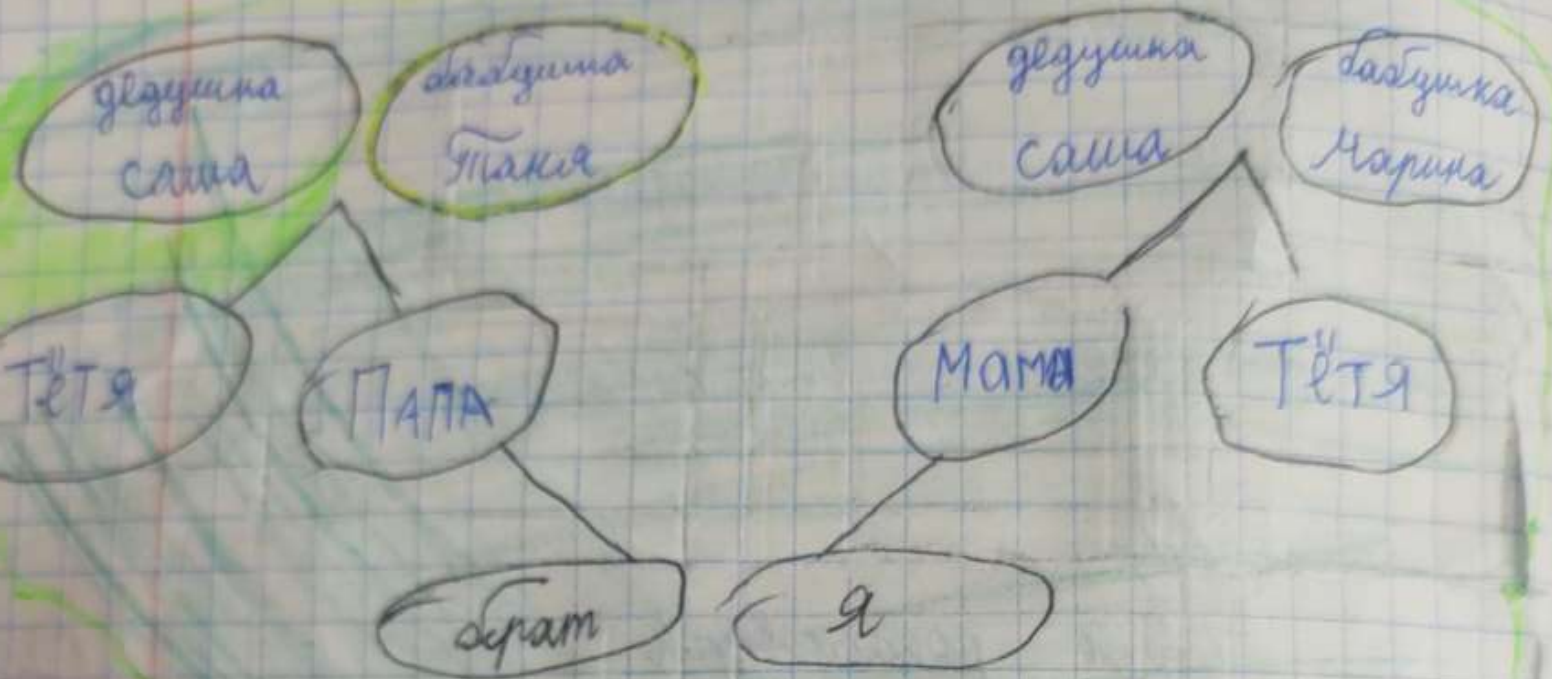 дедушка
саша
бабушка
Таня
дедушка
саша
бабушка
Марина
Тётя
ПАПА
Мама
Тётя
брат
я